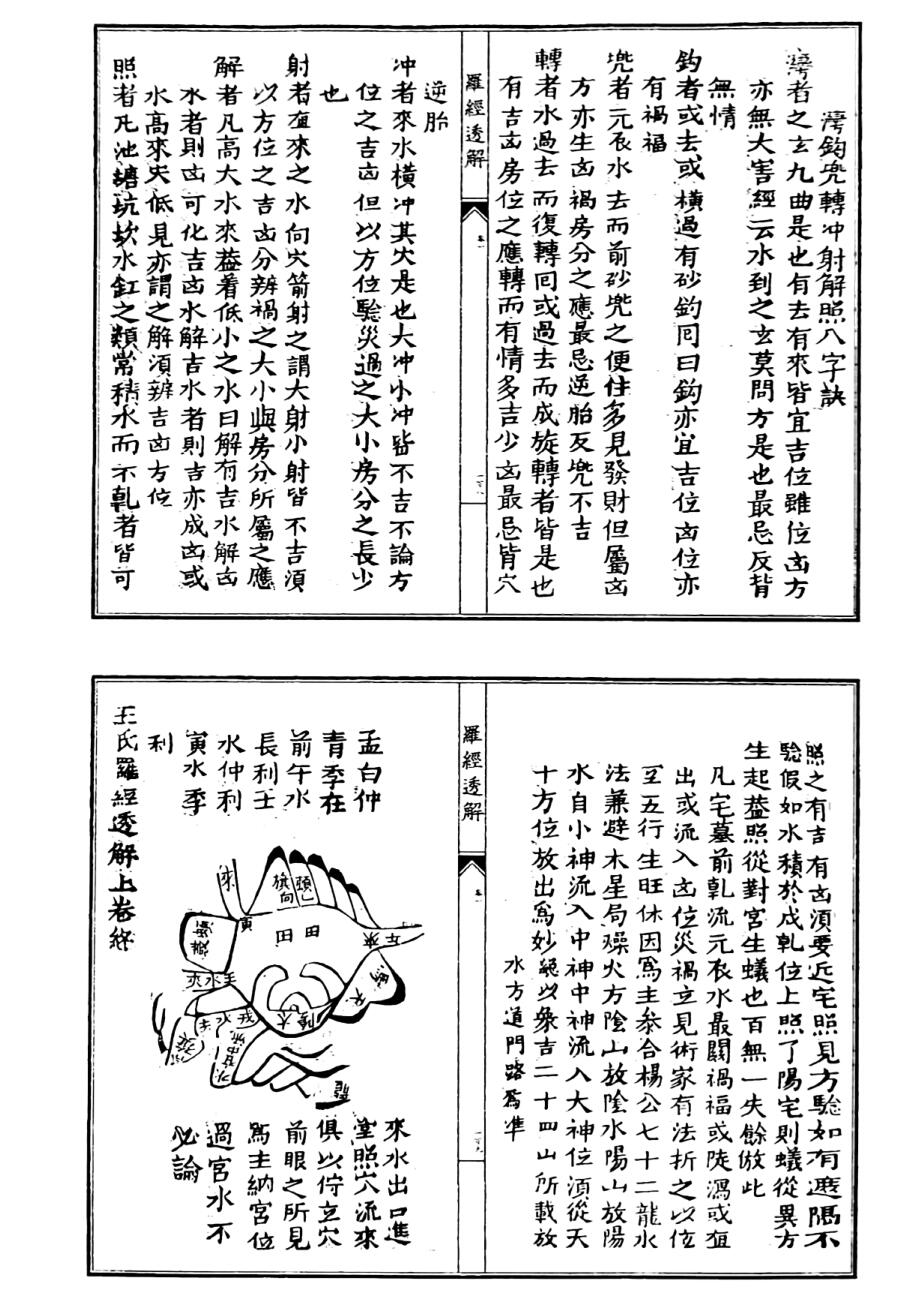 灣鈎兜轉冲射解照八字訣
灣者之玄九曲是也有去有來皆宜吉位雖位凶方
亦無大害經云水到之玄莫問方是也最忌反背
無情
鈎者或去或橫過有砂鈎回曰鈎亦宜吉位凶位亦
有禍福
兜者元辰水去而前砂兜之便住多見發財但屬凶
方亦生凶禍房分之應最忌逆胎反兜不吉
轉者水過去而復轉回或過去而成旋轉者皆是也
有吉凶房位之應轉而有情多吉少凶最忌皆穴
羅經透解
逆胎
冲者來水橫冲其穴是也大冲小冲皆不吉不論方
位之吉凶但以方位驗災過之大小房分之長少
也
射者直來之水向穴箭射之謂大射小射皆不吉須
以方位之吉凶分辨禍之大小與房分所屬之應
解者凡高大水來蓋着低小之水曰解有吉水解凶
水者則凶可化吉凶水解吉水者則吉亦成凶或
水高來穴低見亦謂之解須辨吉凶方位
照者凡池塘坑坎水缸之類常積水而不乹者皆可
照之有吉有凶須要近宅照見方驗如有遮隔不
驗假如水積於戍乹位上照了陽宅則蟻從異方
生起蓋照從對宮生蟻也百無一失餘倣此
凡宅墓前乹流元辰水最關禍福或陡瀉或直
出或流入凶位災禍立見術家有法折之以位
互五行生旺休囚爲主叅合楊公七十二龍水
法兼避木星局燥火方陰山放陰水陽山放陽
水自小神流入中神中神流入大神位須從天
十方位放出爲妙總以衆吉二十四山所載放
水方道門路爲準
羅經透解
孟白仲
青季在
前午水
長利壬
水仲利
寅水季
利
來
顕
旗向
寅
田田
午來
馬
太陰
水
壬水來
龍
來水出口進
堂照穴流來
俱以佇立穴
前眼之所見
爲主納宮位
過宮水不
必論
王氏羅經透解上卷終